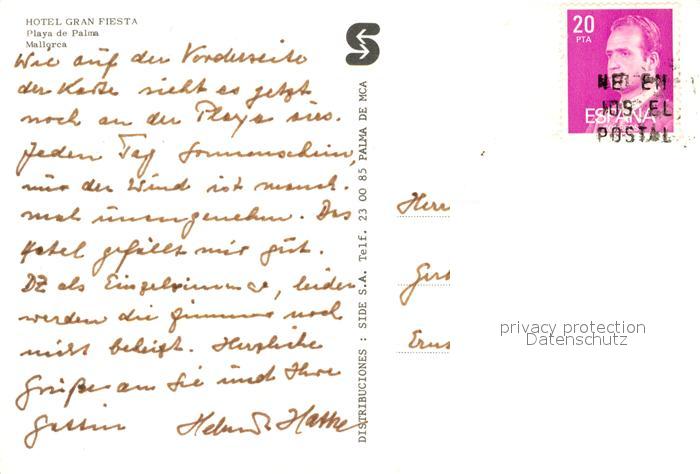 HOTEL GRAN FIESTA
Playa de Palma
Mallorca
Wie auf der Vorderseite
der Karte sieht es jetzt
noch an der Playa aus.
Jeden Tag Sonnenschein,
nur der Wind ist manch-
mal unangenehm. Das
Hotel gefällt mir gut.
DZ als Einzelzimmer, leider
werden die Zimmer noch
nicht beheizt. Herzliche
Grüße an Sie und Ihre
Gattin Helmut
DISTRIBUCIONES : SIDE S.A. Telf. 23 00 85 PALMA DE MCA
20
PTA
ESPAÑA
POSTAL
Herr
Gers
Erns
privacy protection
Datenschutz